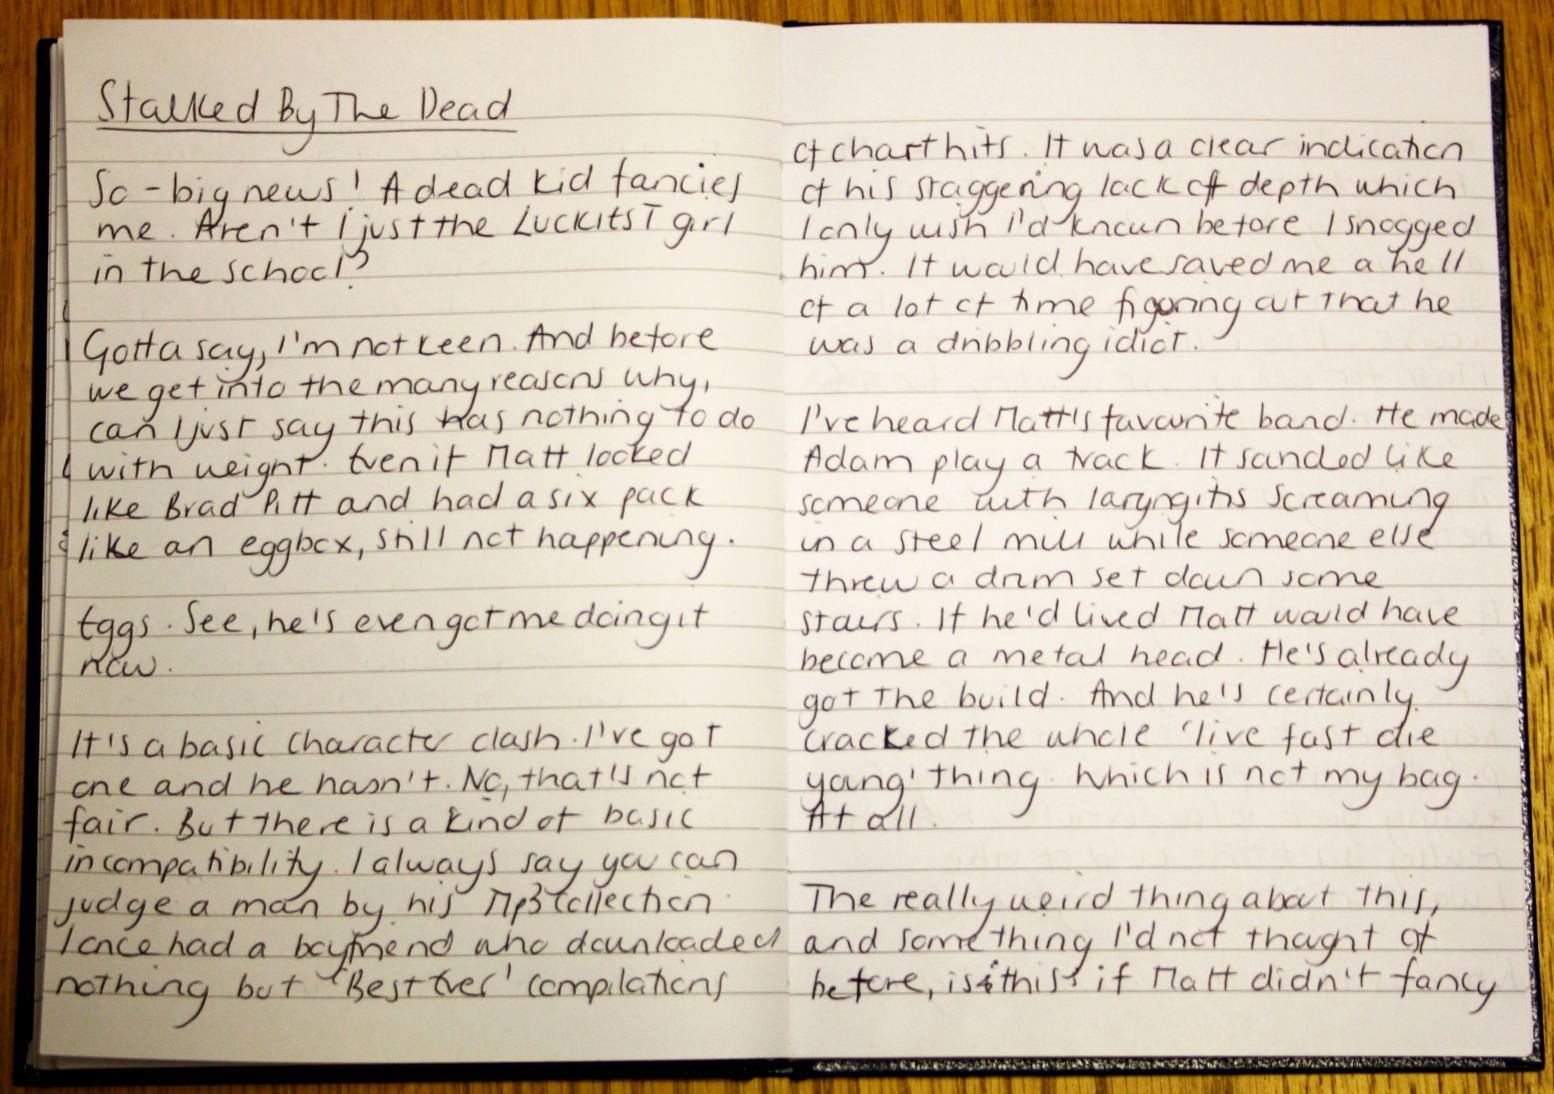 Stalked By The Dead
So - big news! A dead kid fancies
me. Aren't I just the LuckitsT girl
in the school?
Gotta say, I'm not keen. And before
we get into the many reasons why,
can I just say this has nothing to do
with weight. Even if Matt looked
like Brad Pitt and had a six pack
like an eggbox, still not happening.
Eggs. See, he's even got me doing it
now.
It's a basic character clash. I've got
one and he hasn't. No, that's not
fair. But there is a kind of basic
incompatibility. I always say you can
judge a man by his Mp3 collection.
I once had a boyfriend who downloaded
nothing but 'Best Ever' compilations
of chart hits. It was a clear indication
of his staggering lack of depth which
I only wish I'd known before I snogged
him. It would have saved me a hell
of a lot of time figuring out that he
was a dribbling idiot.
I've heard Matt's favourite band. He made
Adam play a track. It sounded like
someone with laryngitis screaming
in a steel mill while someone else
threw a drum set down some
stairs. If he'd lived Matt would have
become a metal head. He's already
got the build. And he's certainly
cracked the whole 'live fast die
young' thing. Which is not my bag.
At all.
The really weird thing about this,
and something I'd not thought of
before, is this: if Matt didn't fancy